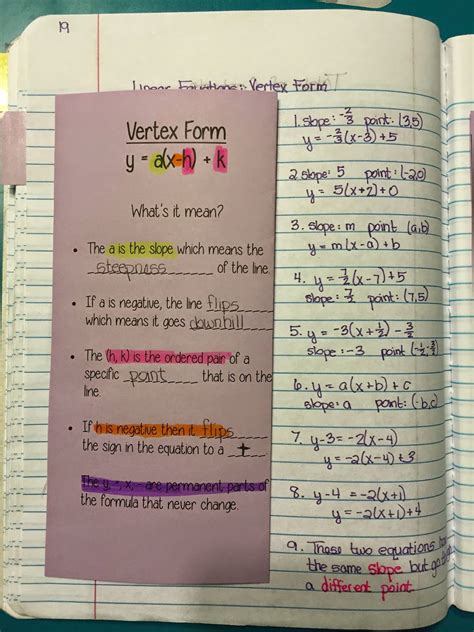 19
Linear Equations: Vertex Form
Vertex Form
y = a(x-h) + k
What's it mean?
• The a is the slope which means the
steepness of the line.
• If a is negative, the line flips
which means it goes downhill.
• The (h, k) is the ordered pair of a
specific point that is on the
line.
• If h is negative then it flips
the sign in the equation to a +
• The y, =, x, - are permanent parts of
the formula that never change.
1. slope: -2/3 point: (3,5)
y = -2/3(x-3)+5
2. slope: 5 point: (-2,0)
y = 5(x+2)+0
3. slope: m point (a,b)
y = m(x-a)+b
4. y = 7/2(x-7)+5
slope: 7/2 point: (7,5)
5. y = -3(x+1/2) - 3/2
slope: -3 point (-1/2, -3/2)
6. y = a(x+b)+c
slope: a point: (-b,c)
7. y-3 = -2(x-4)
y = -2(x-4)+3
8. y-4 = -2(x+1)
y = -2(x+1)+4
9. These two equations
the same slope but go
a different point.